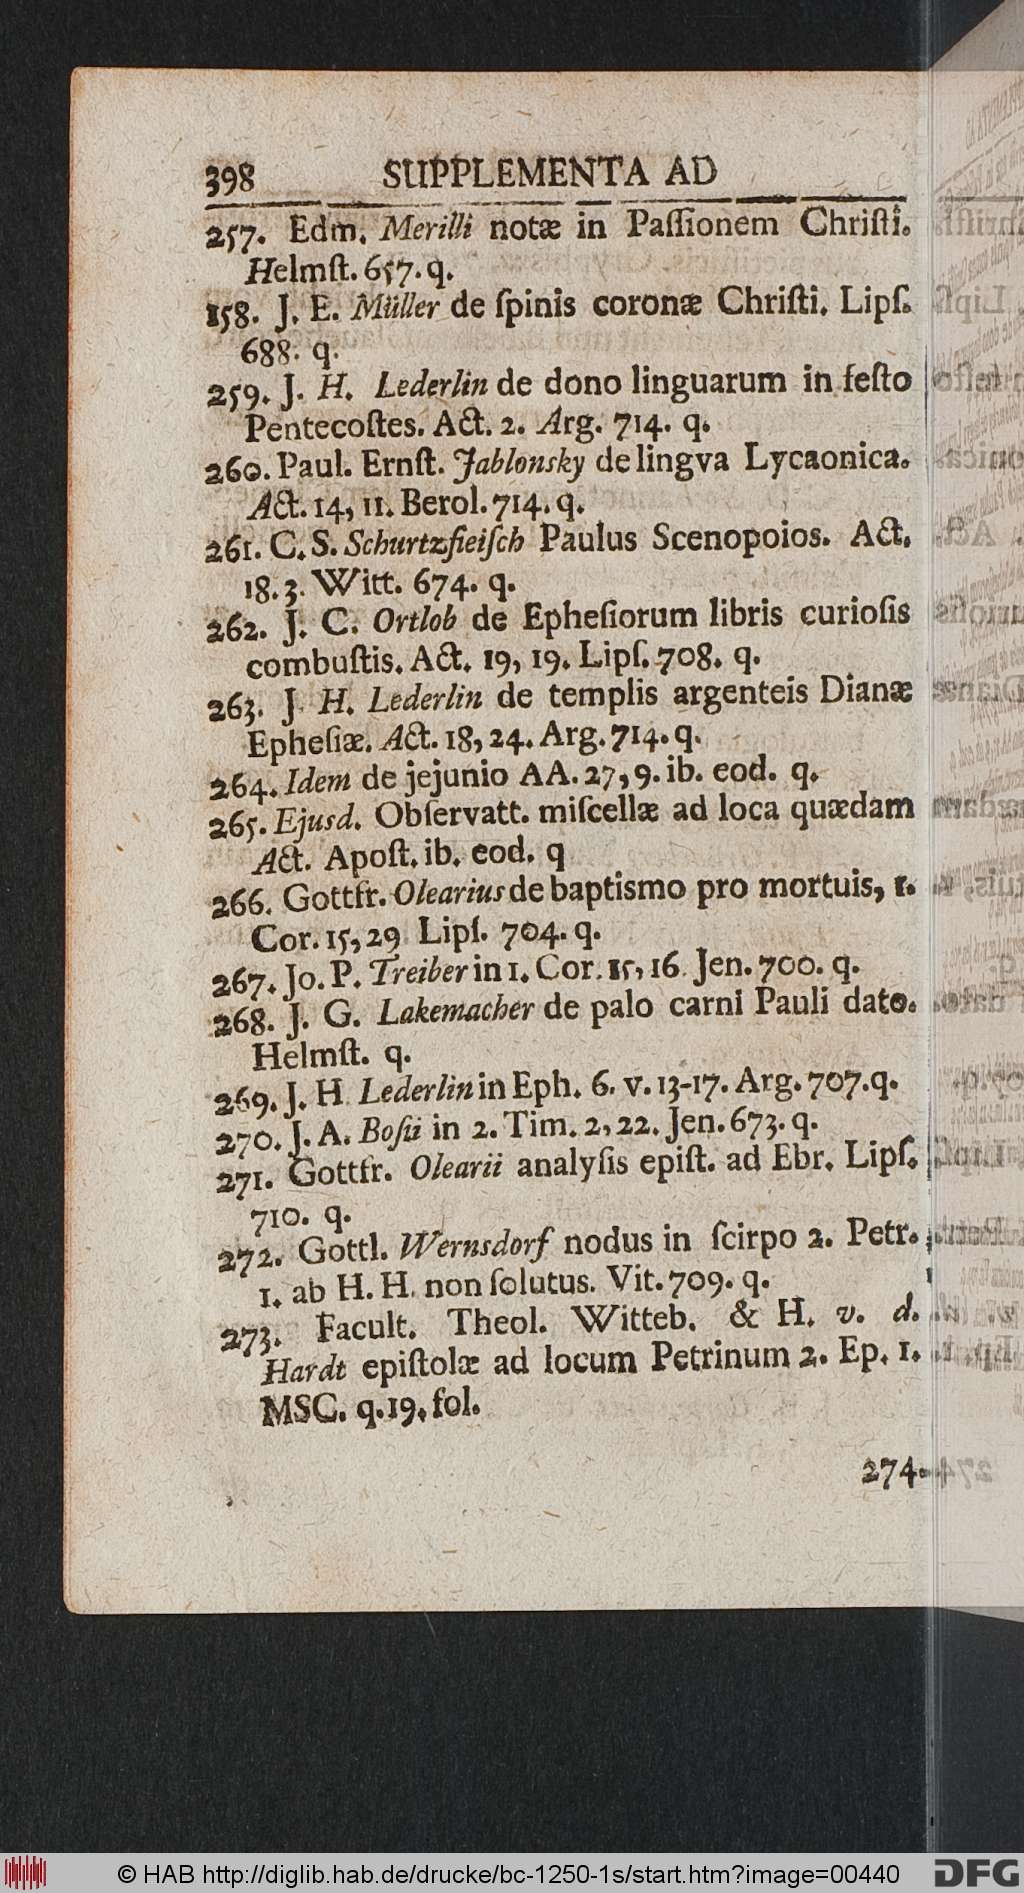 398 SUPPLEMENTA AD
257. Edm. Merilli notæ in Paſſionem Chriſti.
Helmſt. 657. q.
158. J. E. Müller de ſpinis coronæ Chriſti. Lipſ.
688. q.
259. J. H. Lederlin de dono linguarum in feſto
Pentecoſtes. Act. 2. Arg. 714. q.
260. Paul. Ernſt. Jablonsky de lingva Lycaonica.
Act. 14, 11. Berol. 714. q.
261. C. S. Schurtzfleiſch Paulus Scenopoios. Act.
18. 3. Witt. 674. q.
262. J. C. Ortlob de Epheſiorum libris curioſis
combuſtis. Act. 19, 19. Lipſ. 708. q.
263. J H. Lederlin de templis argenteis Dianæ
Epheſiæ. Act. 18, 24. Arg. 714. q.
264. Idem de jejunio AA. 27, 9. ib. eod. q.
265. Ejusd. Obſervatt. miſcellæ ad loca quædam
Act. Apoſt. ib. eod. q
266. Gottfr. Olearius de baptismo pro mortuis, 1.
Cor. 15, 29 Lipſ. 704. q.
267. Jo. P. Treiber in 1. Cor. 15, 16. Jen. 700. q.
268. J. G. Lakemacher de palo carni Pauli dato.
Helmſt. q.
269. J. H Lederlin in Eph. 6. v. 13-17. Arg. 707. q.
270. J. A. Boſii in 2. Tim. 2, 22. Jen. 673. q.
271. Gottfr. Olearii analyſis epiſt. ad Ebr. Lipſ.
710. q.
272. Gottl. Wernsdorf nodus in ſcirpo 2. Petr.
1. ab H. H. non ſolutus. Vit. 709. q.
273. Facult. Theol. Witteb. & H. v. d.
Hardt epiſtolæ ad locum Petrinum 2. Ep. 1.
MSC. q. 19. fol.
274.
© HAB http://diglib.hab.de/drucke/bc-1250-1s/start.htm?image=00440 DFG